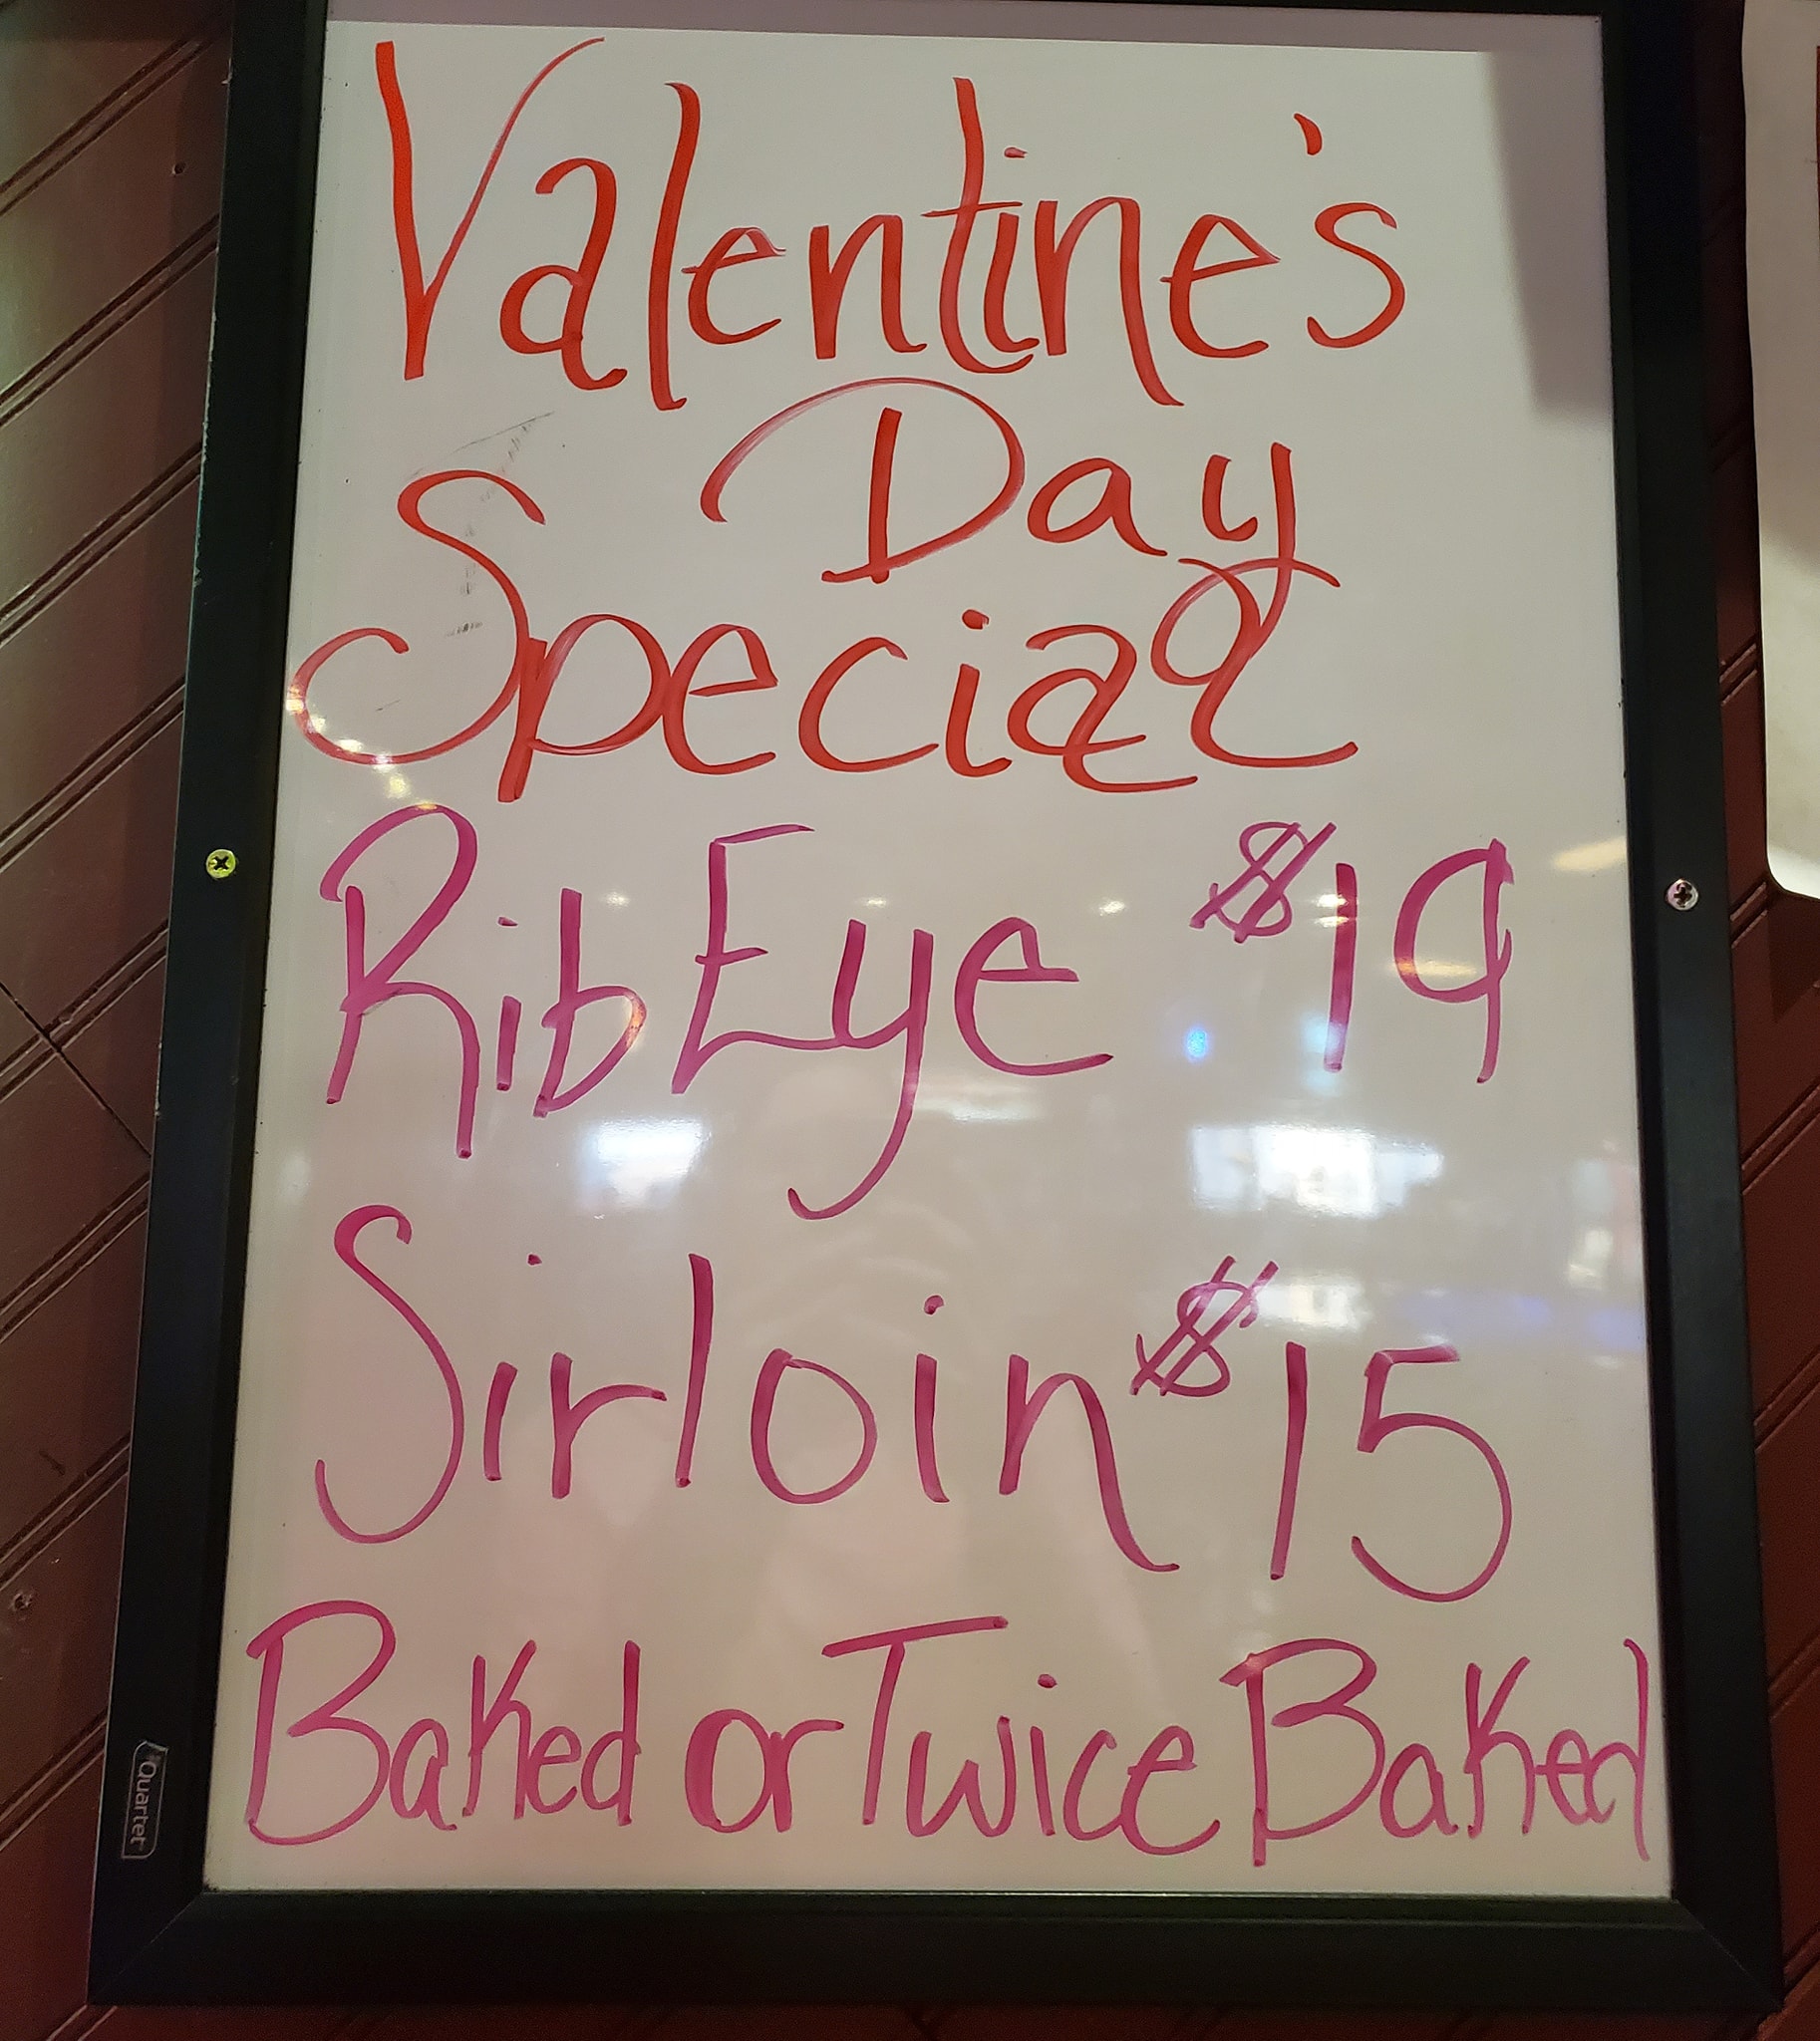 Valentine's
Day
Special
Rib Eye $19
Sirloin $15
Baked or Twice Baked
Quartet